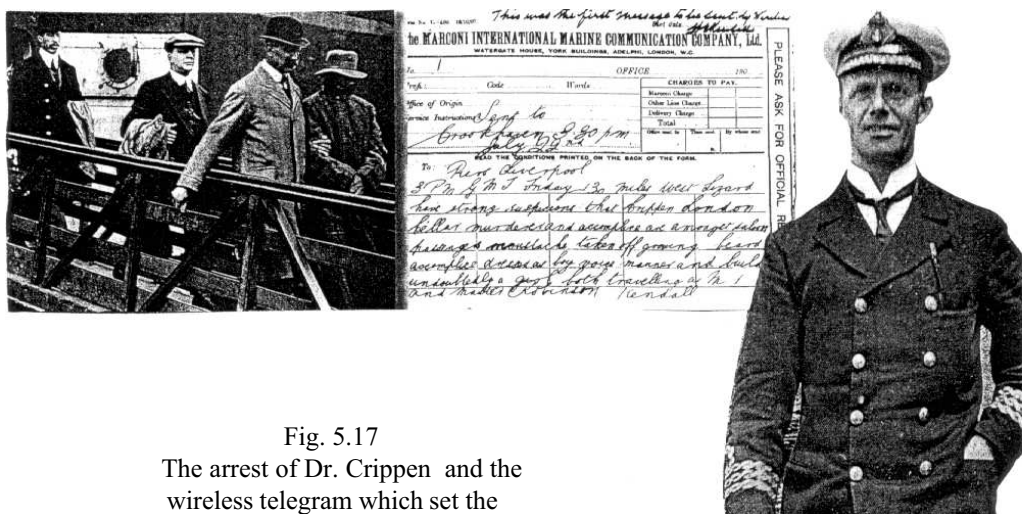 This was the first message to be sent by
the MARCONI INTERNATIONAL MARINE COMMUNICATION COMPANY, Ltd.
WATERGATE HOUSE, YORK BUILDINGS, ADELPHI, LONDON, W.C.
No. 1 OFFICE 190
Prefix Code Words
CHARGES TO PAY.
Marconi Charge
Other Line Charge
Delivery Charge
Total
Office of Origin
Service Instructions Sent to
Crookhaven 3.30 pm
July 22nd
Office sent to Time sent By whom sent
READ THE CONDITIONS PRINTED ON THE BACK OF THE FORM.
To: Piers Liverpool
3 PM GMT Friday 130 miles West Lizard
have strong suspicions that Crippen London
cellar murderer and accomplice are amongst saloon
passengers moustache taken off growing beard
accomplice dressed as boy voice manner and build
undoubtedly a girl both travelling as Mr
and Master Robinson Kendall
PLEASE ASK FOR OFFICIAL
Fig. 5.17
The arrest of Dr. Crippen and the
wireless telegram which set the